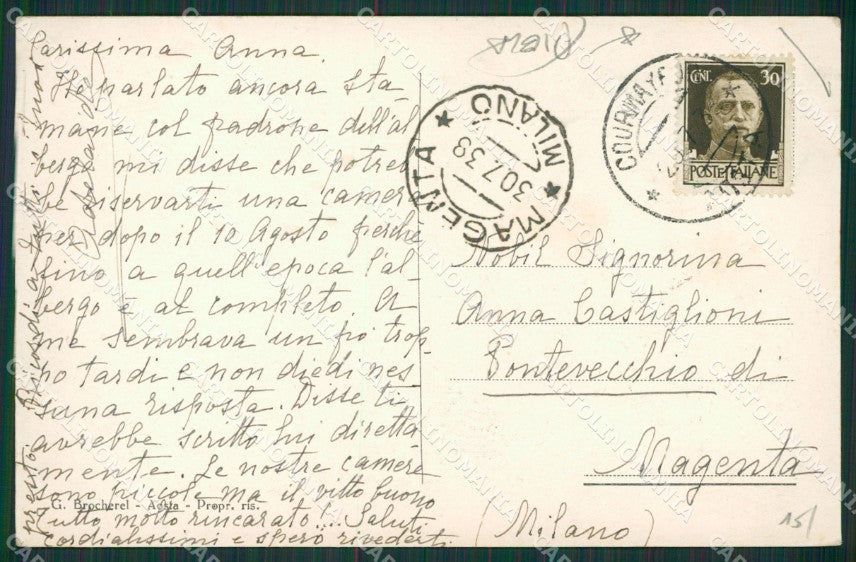 Carissima Anna.
Ho parlato ancora sta-
mane col padrone dell'al
bergo mi disse che potreb
be riservarti una camera
per dopo il 10 Agosto perchè
fino a quell'epoca l'al-
bergo è al completo. A
me sembrava un pò trop-
po tardi e non diedi nes
suna risposta. Disse ti
avrebbe scritto lui diretta
mente. Le nostre camere
sono piccole ma il vitto buono
tutto molto rincarato!.. Saluti
cordialissimi e spero rivederti
presto. Ricordi a tutti i tuoi
G. Brocherel - Aosta - Propr. ris.
MAGENTA * MILANO *
30.7.38
COURMAYEUR
CENT. 30
POSTE ITALIANE
Nobil Signorina
Anna Castiglioni
Pontevecchio di
Magenta
(Milano)
15/
CARTOLINOMANIA